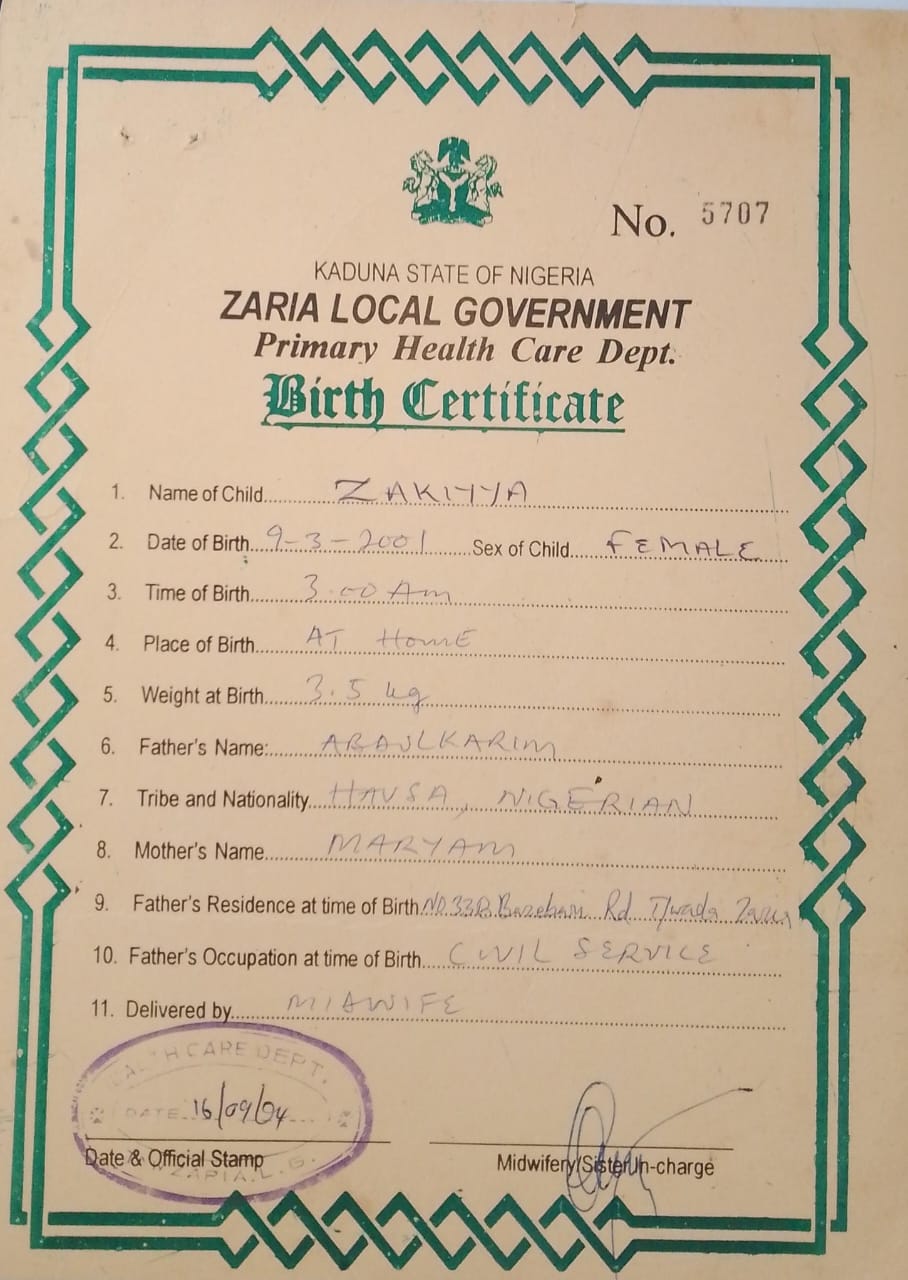 No. 5707
KADUNA STATE OF NIGERIA
ZARIA LOCAL GOVERNMENT
Primary Health Care Dept.
Birth Certificate
1. Name of Child..........ZAKIYYA
2. Date of Birth..9-3-2001......Sex of Child....FEMALE
3. Time of Birth........3.00 Am
4. Place of Birth.......AT HomE
5. Weight at Birth.......3.5 kg
6. Father's Name:.......ABDULKARIM
7. Tribe and Nationality...HAUSA, NIGERIAN
8. Mother's Name..........MARYAM
9. Father's Residence at time of Birth NO 33B Rd T/wada Zaria
10. Father's Occupation at time of Birth...CIVIL SERVICE
11. Delivered by.......MIDWIFE
HEALTH CARE DEPT.
DATE 16/09/04
Date & Official Stamp
ZARIA L.G.
Midwifery/Sister/In-charge